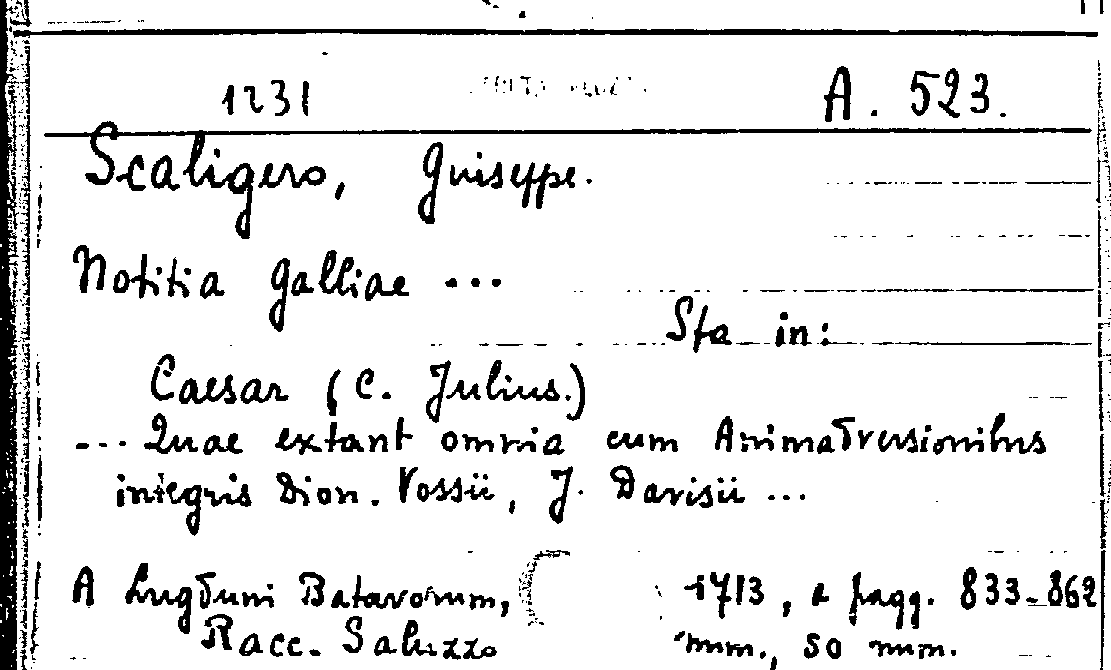 1231 A. 523.
Scaligero, Guiseppe.
Notitia Galliae ...
Sta in:
Caesar (C. Julius.)
... Quae extant omnia cum Animadversionibus
integris Dion. Vossii, J. Davisii ...
A Lugduni Batavorum, 1713, a pagg. 833-862
Racc. Saluzzo num., 50 num.